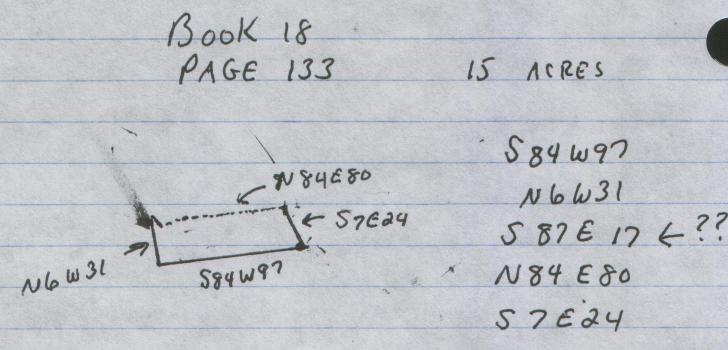 BOOK 18
PAGE 133
15 ACRES
N84E80
S7E24
N6W31
S84W97
S84W97
N6W31
S 87 E 17 ← ??
N84 E80
S 7 E 24